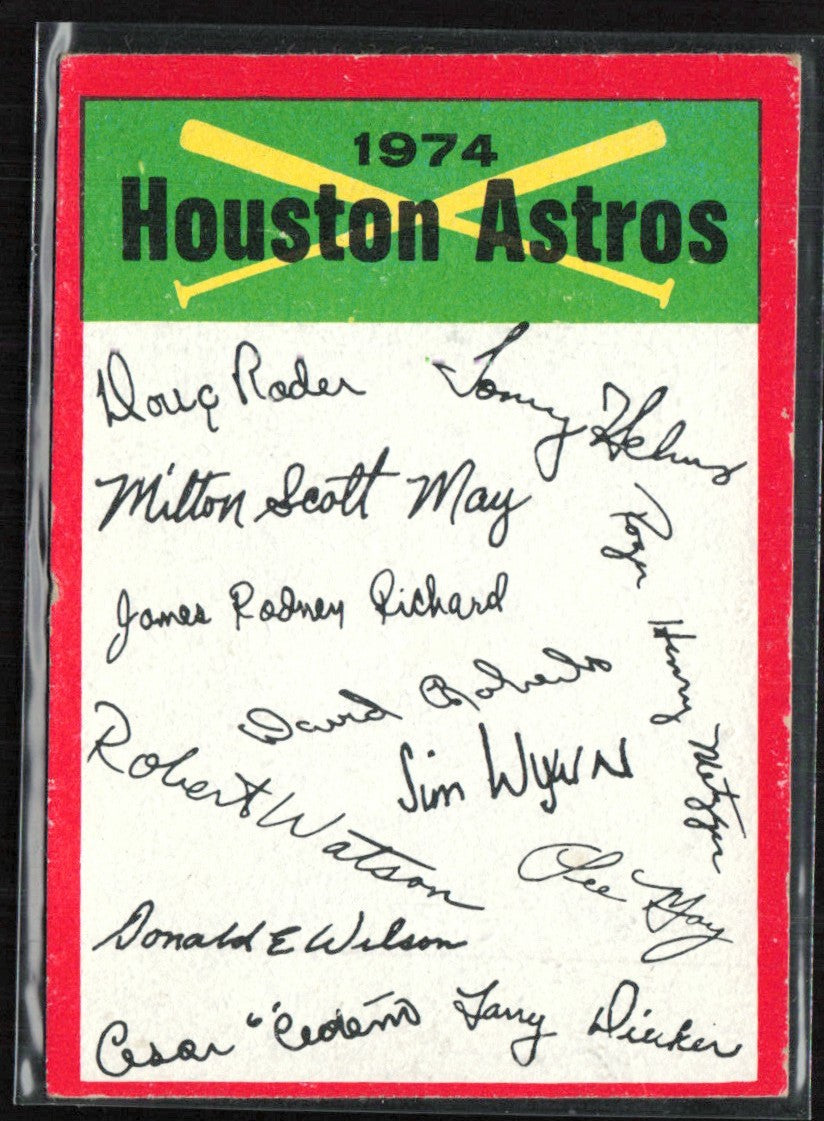 1974
Houston Astros
Doug Rader
Tommy Helms
Milton Scott May
Roger Henry Metzger
James Rodney Richard
David Roberts
Robert Watson
Jim Wynn
Lee May
Donald E Wilson
Cesar "Cedeño
Larry Dierker